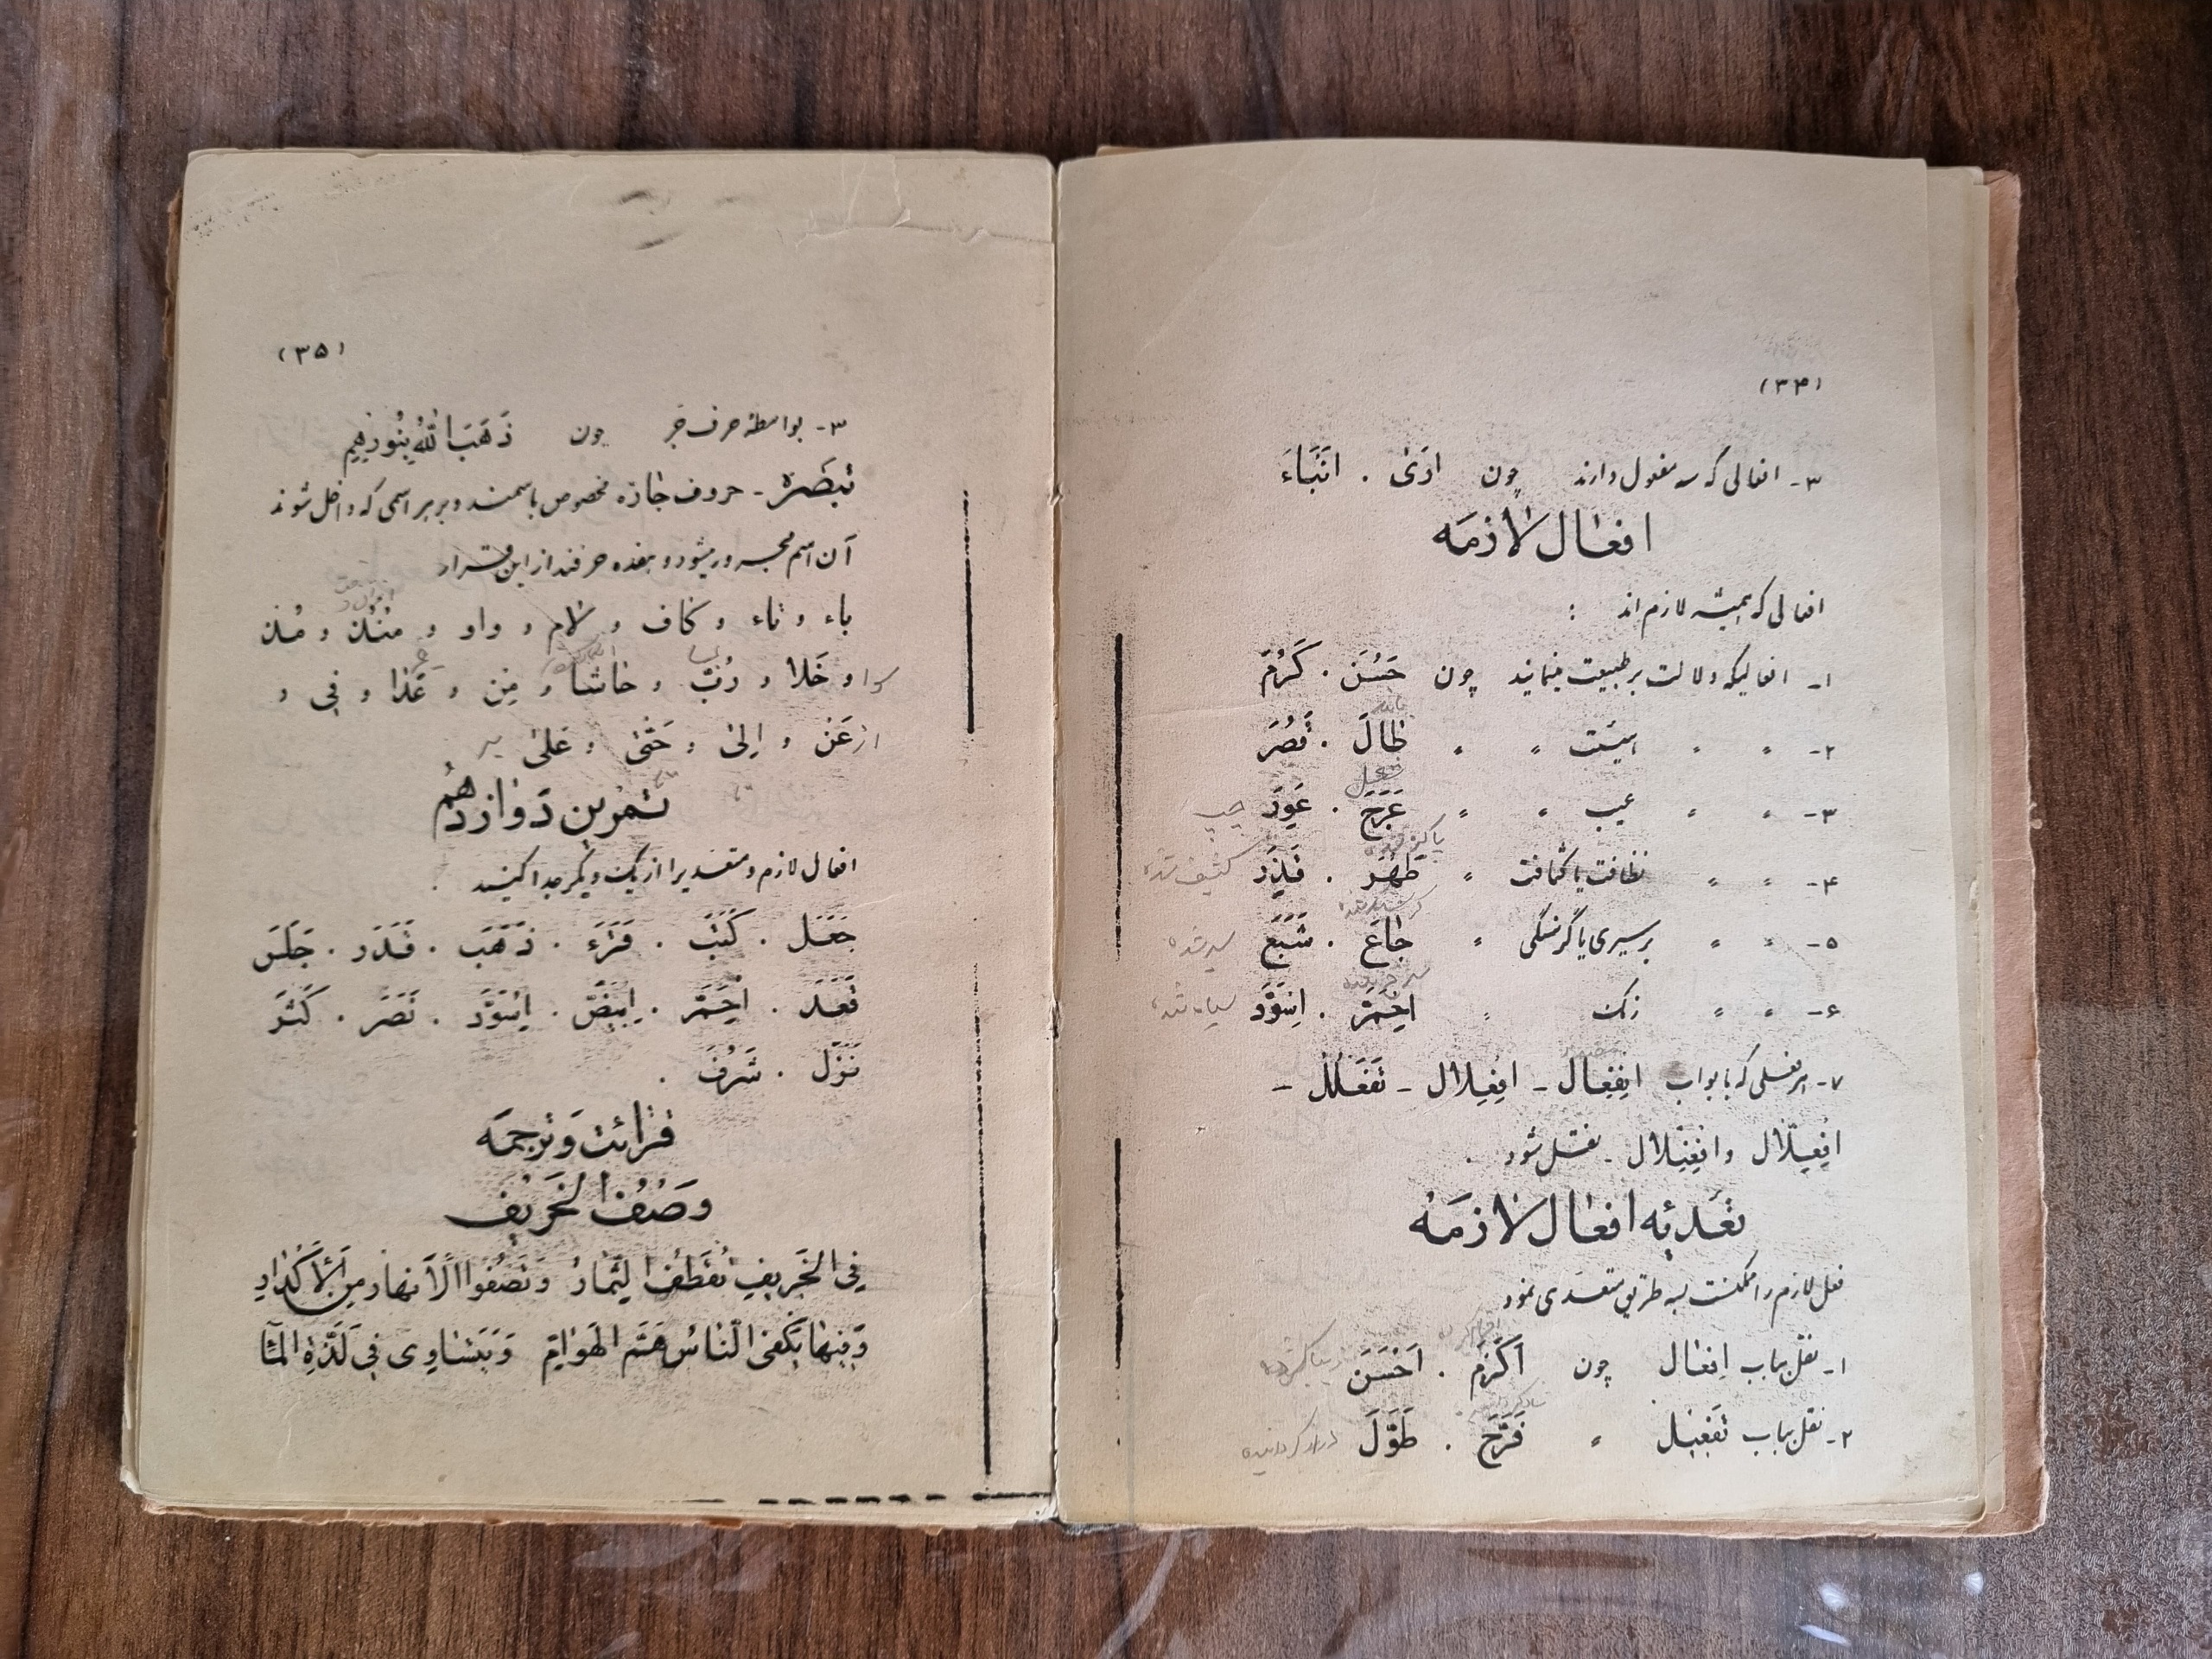 (۳۴)
۳- افعالی که سه مفعول دارند چون اَرَیٰ . اَنْبَاءَ
افعال لازمه
افعالی که همیشه لازم اند :
۱- افعالیکه دلالت بر طبیعت مینمایند چون حَسُنَ . کَرُمَ
۲- " " " هیئت " " طالَ . قَصُرَ
۳- " " " عیب " " عَرِجَ . عَوِرَ
۴- " " " نظافت یا کثافت " طَهُرَ . قَذِرَ
کثیف شده
۵- " " " بر سیری یا گرسنگی " جاعَ . شَبِعَ
سیر شده
۶- " " " رنک " اِحْمَرَّ . اِسْوَدَّ
سیاه شده
۷- هر فعلی که بابواب اِنْفِعال - اِفْعِلال - تَفَعْلُل -
اِفْعِلّال و اِفْعِنْلال - نقل شود .
تعدیه افعال لازمه
فعل لازم را ممکنست بسه طریق متعدی نمود
۱- نقل بباب اِفعال چون اَکْرَمَ . اَحْسَنَ
۲- نقل بباب تَفْعیل " فَرَّحَ . طَوَّلَ
دراز گردانیده
(۳۵)
۳- بواسطه حرف جَر چون ذَهَبَ اللّٰهُ بِنُورِهِم
تبصَره - حروف جارّه مخصوص باسمند و بر هر اسمی که داخل شوند
آن اسم مجرور میشود و هفده حرفند از این قرار
باء و تاء و کاف و لام و واو و مُنْذُ و مُذ
و خَلا و رُبَّ و حاشا و مِن و عَدا و فی و
عَنْ و اِلیٰ و حَتّیٰ و عَلیٰ
تمرین دوازدهُم
افعال لازم و متعدیرا از یک دیگر جدا کنید .
جَعَلَ . کَتَبَ . قَرَءَ . ذَهَبَ . قَدَرَ . جَلَسَ
قَعَدَ . اِحْمَرَّ . اِبْیَضَّ . اِسْوَدَّ . نَصَرَ . کَثُرَ
نَزَّلَ . شَرُفَ .
قرائت و ترجمه
وَصْفُ الخَریف
فِی الخَریفِ تُقْطَفُ الثِّمارُ وَ تَصْفُو الْاَنهار مِنَ الْاَکْدارِ
وَ فیها یُکْفَی النّاسُ هَمَّ الهَوامّ وَ یَتَساوی فی لَذَّةِ المآءِ